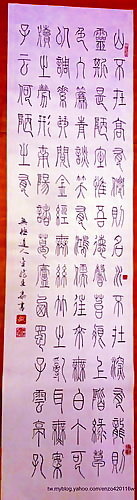 山不在高有僊則名水不在深有龍則
靈斯是陋室惟吾德馨苔痕上階綠草
色入簾青談笑有鴻儒往來無白丁可
以調素琴閱金經無絲竹之亂耳無案
牘之勞形南陽諸葛廬西蜀子雲亭孔
子云何陋之有
tw.myblog.yahoo.com/enzo420116w